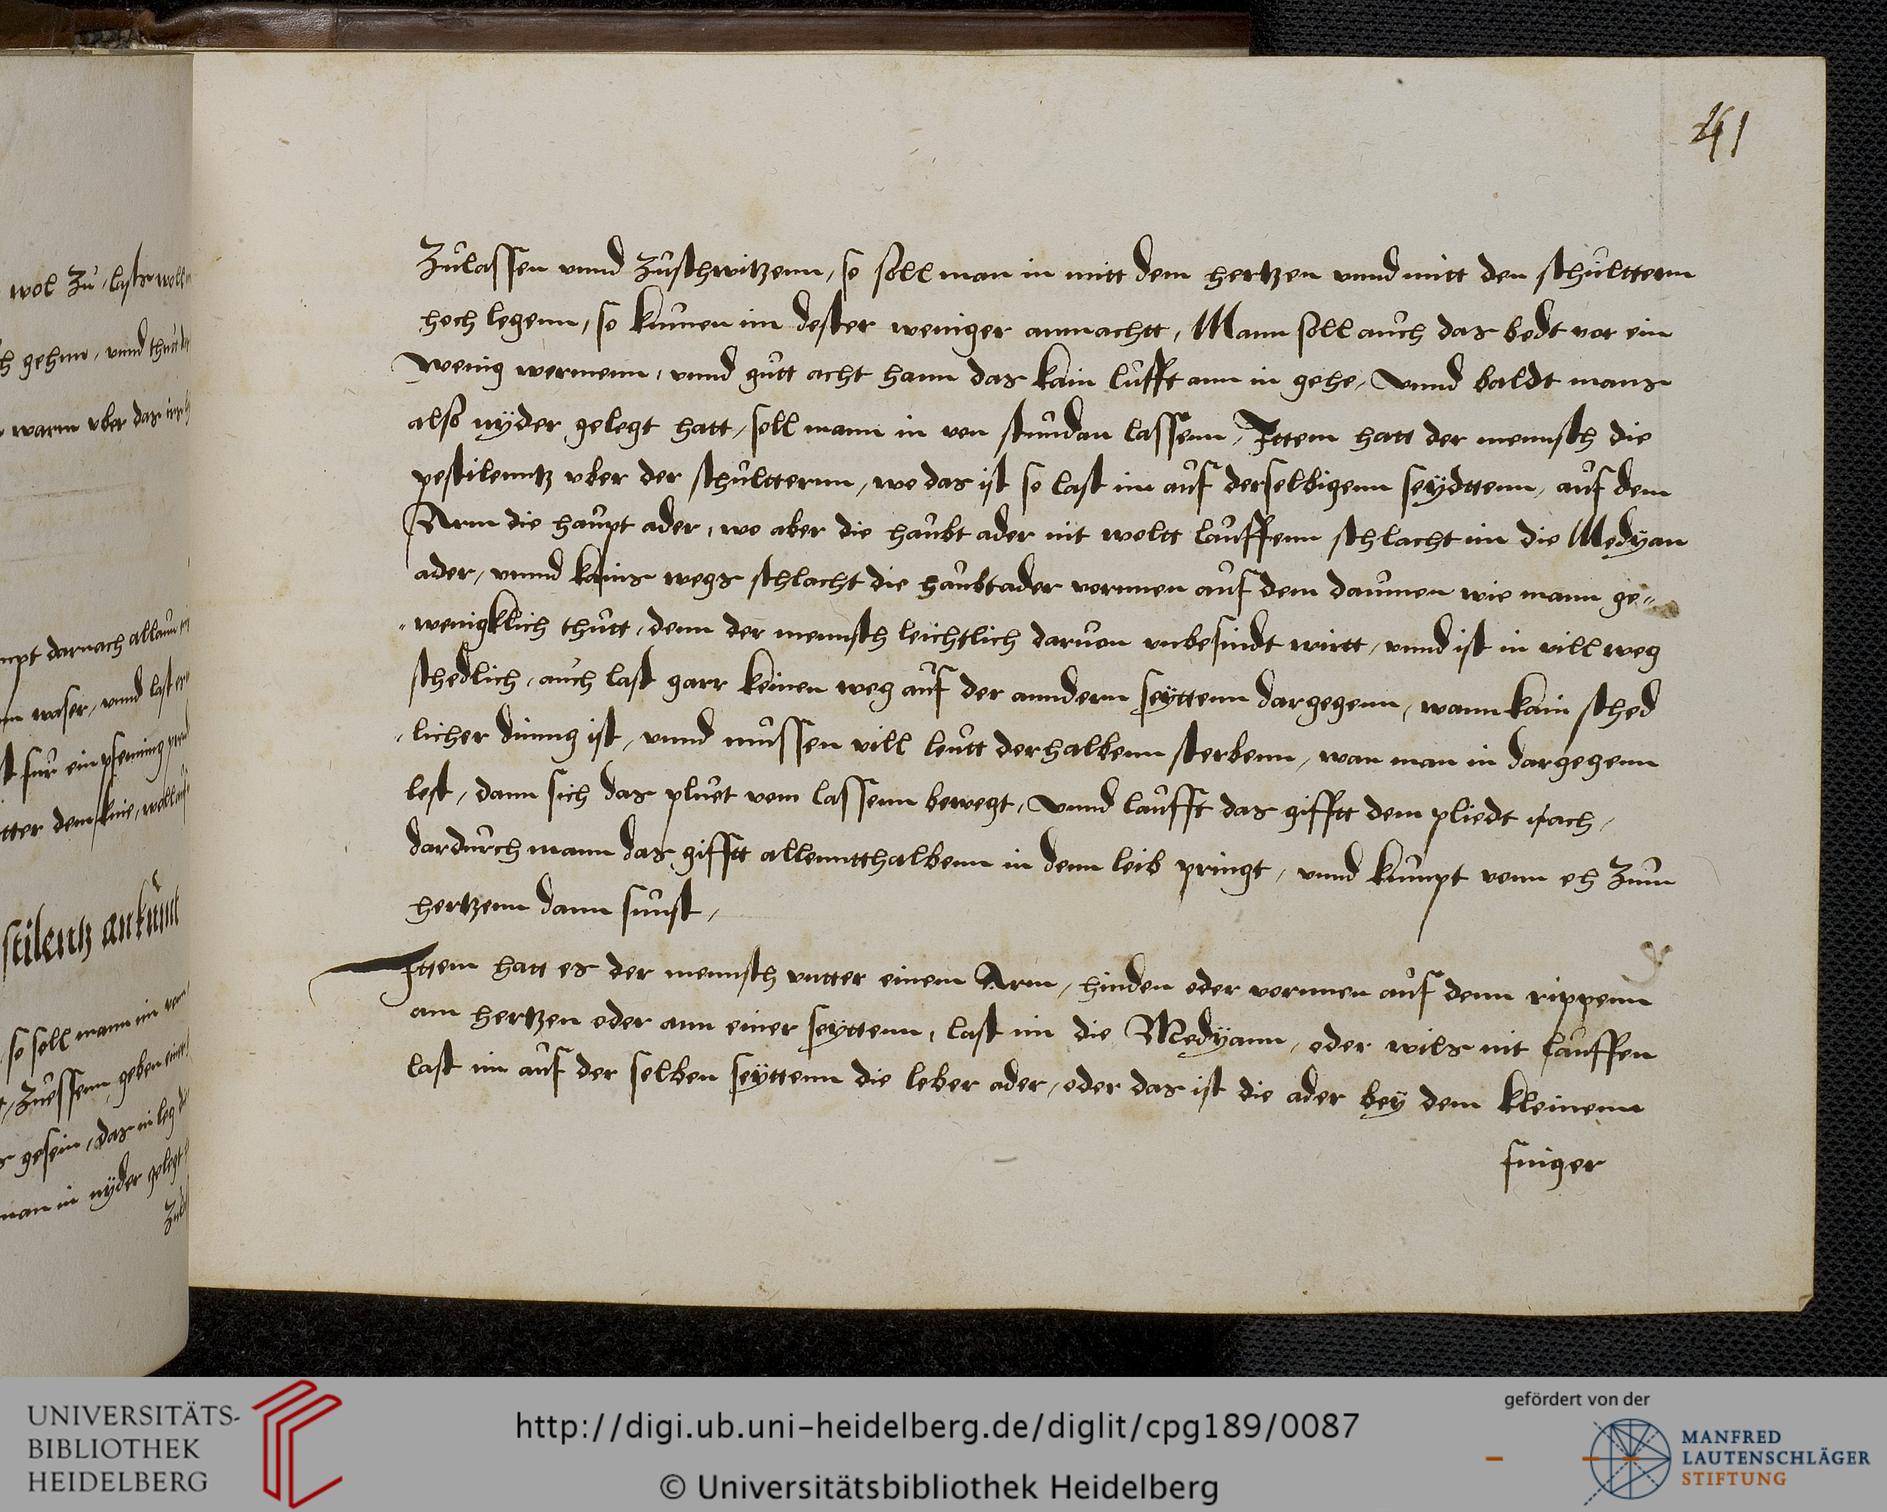 41
Zulassen vnnd Zuschwitzenn, so soll man in mitt dem hertzen vnnd mitt den schulttern
hoch legenn, so kumen im dester weniger anmachtt, Mann soll auch das bedt vor ein
wenig wermenn, vnnd gutt acht hann das kain lufft ann in gehe, Vnnd baldt mans
also nyder gelegt hatt, soll mann in von stundan lassenn, Ittem hatt der mennsch die
pestilenntz vber der schultternn, wo das ist so last im auf derselbigenn seydttenn, auf dem
Arm die haupt ader, wo aber die haubt ader nit woltt lauffenn schlacht im die Medyan
ader, vnnd kains wegs schlacht die haubtader vornnen auf dem daumen wie mann ge„
„wenigklich thutt, denn der mennsch leichtlich daruon vnbesindt wirtt, vnnd ist in vill weg
schedlich, auch last garr keinen weg auf der anndern seyttenn dargegenn, wann kain sched
licher dinng ist, vnnd mussen vill leutt derhalbenn sterbenn, wan man in dargegenn
lest, dann sich das pluet vom lassenn bewegt, Vnnd laufft das gifftt dem pliedt nach,
dardurch mann das gifftt allenntthalbenn in denn leib pringt, vnnd kumpt vonn eh Zum
hertzenn dann sunst,
Ittem hatt es der mennsch vntter einem Arm, hinden oder vornnen auf denn rippenn
am hertzen oder ann einer seyttenn, last im die Medyann, oder wils nit lauffen
last im auf der selben seyttenn die leber ader, oder das ist die ader bey dem kleinenn
finger
UNIVERSITÄTS-
BIBLIOTHEK
HEIDELBERG
http://digi.ub.uni-heidelberg.de/diglit/cpg189/0087
© Universitätsbibliothek Heidelberg
gefördert von der
MANFRED
LAUTENSCHLÄGER
STIFTUNG